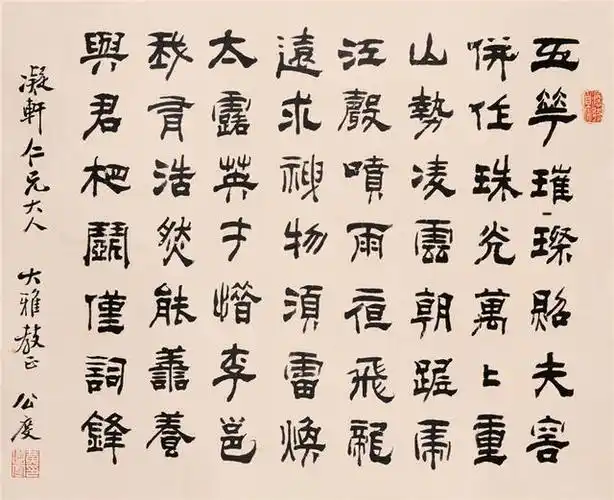 五華璀璨夫容
併作珠光萬重
山勢凌雲朝踞虎
江聲噴雨夜飛龍
遠求神物須雷煥
太露英才惜李邕
我有浩然能善養
與君把鬭僅詞鋒
凝軒仁兄大人 大雅教正 公度